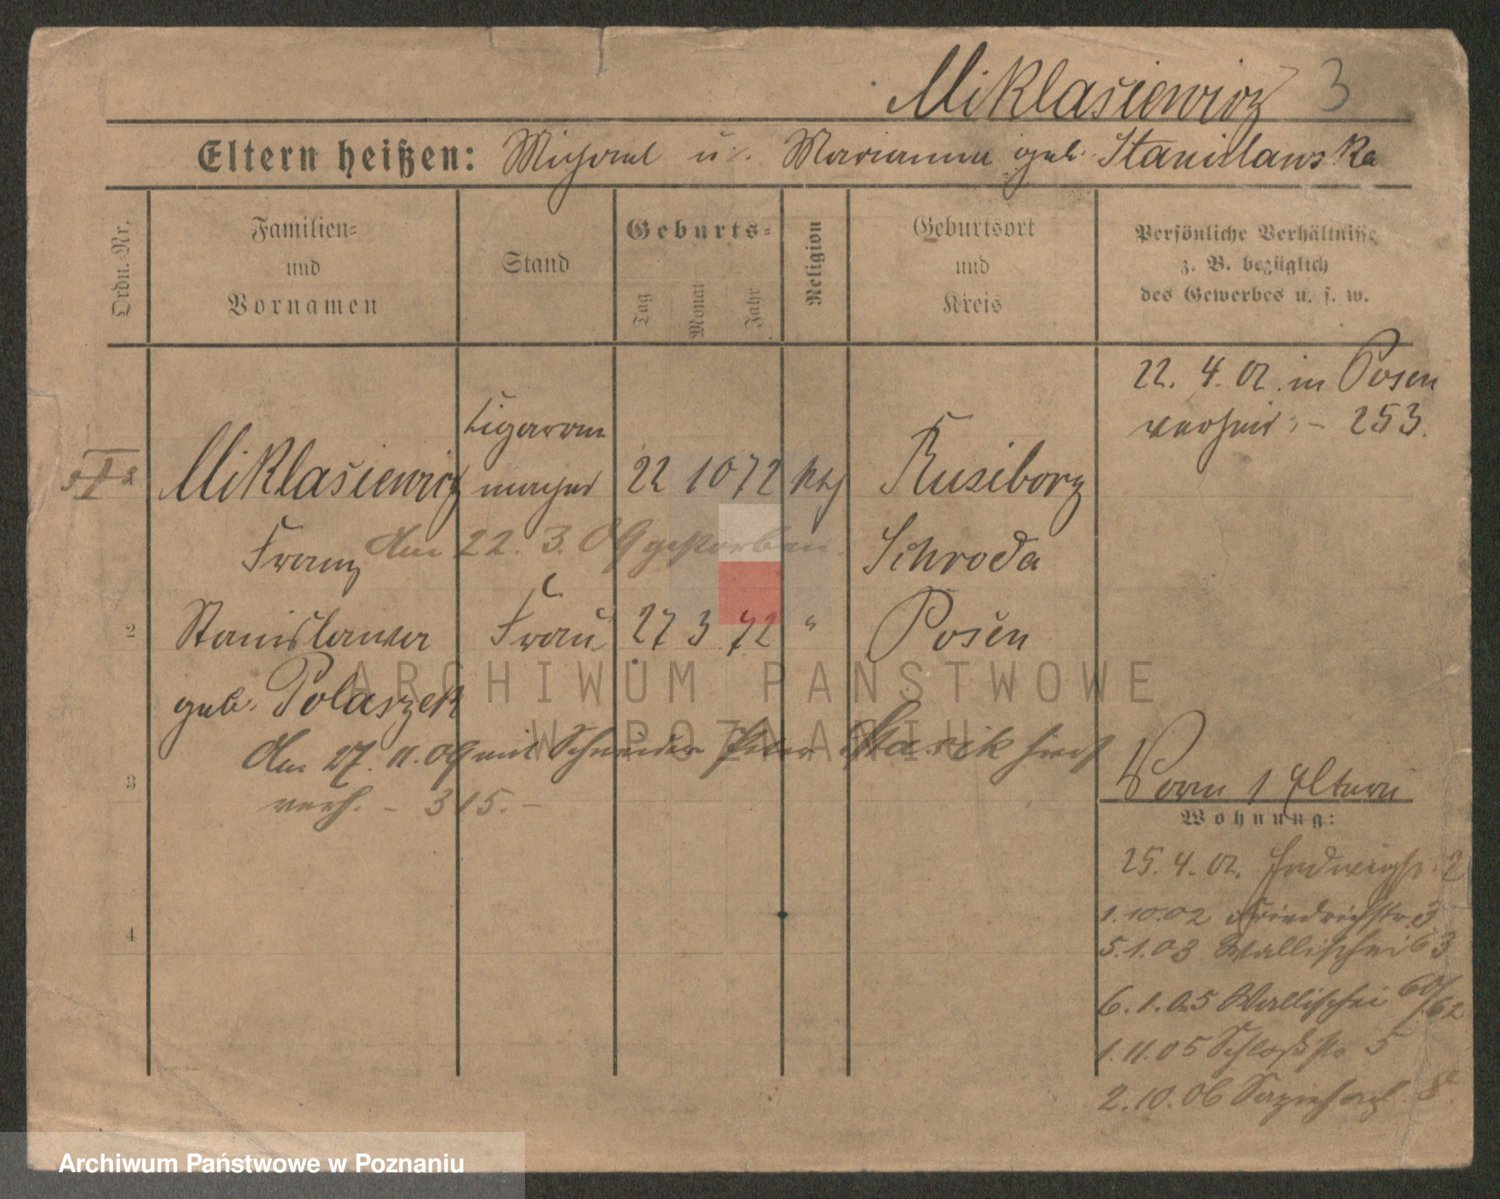 Miklasiewicz 3
Eltern heißen: Michael u. Marianna geb. Stanislawska
Ordn. Nr.
Familien-
und
Vornamen
Stand
Geburts-
Tag
Monat
Jahr
Religion
Geburtsort
und
Kreis
Persönliche Verhältnisse
z. B. bezüglich
des Gewerbes u. s. w.
22. 4. 02. in Posen
verheir: - 253.
Cigarren
Miklasiewicz macher 22 10 72 kth Rusiborz
Franz Schroda
den 22. 3. 09 gestorben
2 Stanislawa Frau 27 3 72 " Posen
geb. Polaszek
den 27. 11. 09 mit Schneider Peter hier
3 verh. - 315. -
4
Vorn 1 Eltern
Wohnung:
25. 4. 02. 2
1.10.02 Friedrichstr. 3
5.1.03 Wallischei 63
6.1.05 Wallischei 60/62
1.11.05 Schloßstr 5
2.10.06 8
ARCHIWUM PAŃSTWOWE
W POZNANIU
Archiwum Państwowe w Poznaniu